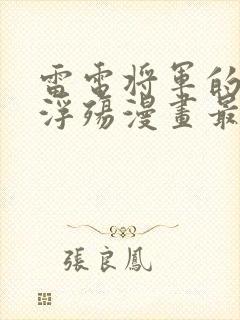 雷電將軍的
浮殤漫畫最
張良鳳